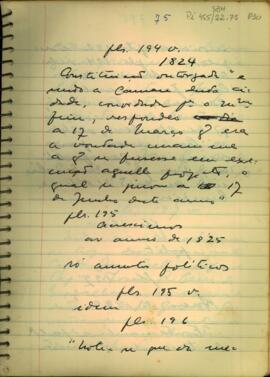 75
Pi 455/22.75 P30
fls. 194 v.
1824
Constituição outorgada "e
indo a Camara desta ci
dade, convocada pª o mmo
fim, respondeo
a 17 de Março qᵉ era
a vontade unanime
a qᵉ se puzesse em exe
cução aquelle projecto, o
qual se jurou a 17
de Junho deste anno"
fls. 195
ao anno de 1825
só assuntos politicos
fls. 195 v.
idem
fls. 196
"Nota-se que da